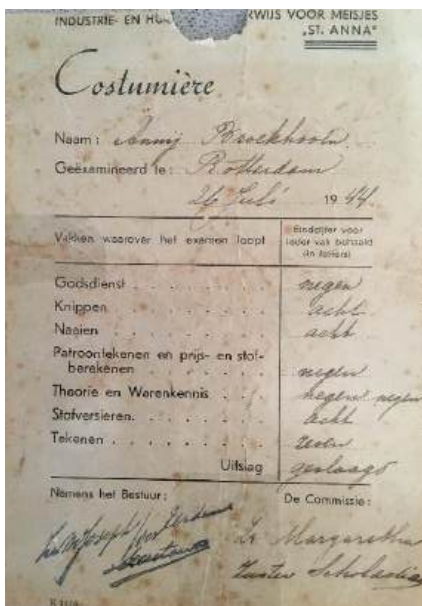 INDUSTRIE- EN RWIJS VOOR MEISJES
„ST. ANNA”
Costumière
Naam: Annij
Geëxamineerd te: Rotterdam
26 Juli 1944.
Vakken waarover het examen loopt
Eindcijfer voor
ieder vak behaald
(in letters)
Godsdienst negen
Knippen acht
Naaien acht
Patroontekenen en prijs- en stof-
berekenen negen
Theorie en Warenkennis negen negen
Stofversieren acht
Tekenen zeven
Uitslag geslaagd
Namens het Bestuur:
De Commissie:
Zr Margaretha
Zuster Scholastica